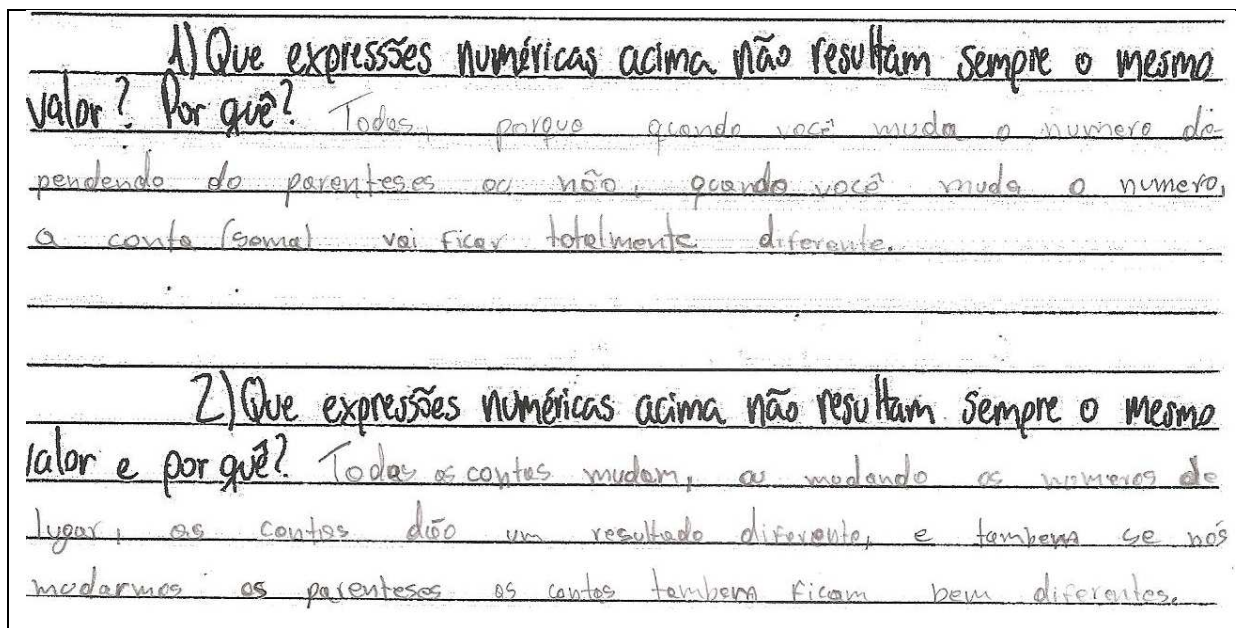 1) Que expresssões numéricas acima não resultam sempre o mesmo
valor? Por quê? Todas, porque quando você muda o numero de-
pendendo do parenteses ou não, quando você muda o numero,
a conta (soma) vai ficar totalmente diferente.
2) Que expressões numéricas acima não resultam sempre o mesmo
valor e por quê? Todas as contas mudam, ou mudando os numeros de
lugar, as contas dão um resultado diferente, e tambem se nós
mudarmos os parenteses as contas tambem ficam bem diferentes.